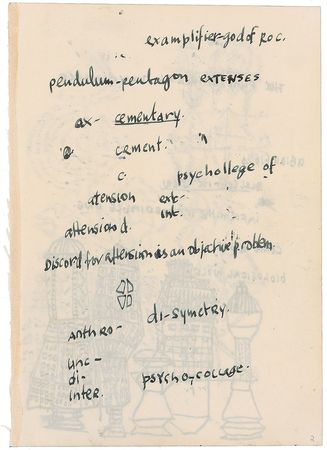 examplifier-god of ROC.
pendulum-pentagon EXTENSES
ax- cementary.
cement.
c. psychollege of
atension ext-
int.
attension d.
Discord for attension is an objective problem.
di-symetry.
ANTHRO-
unc-
di-
inter. psycho-collage.
2